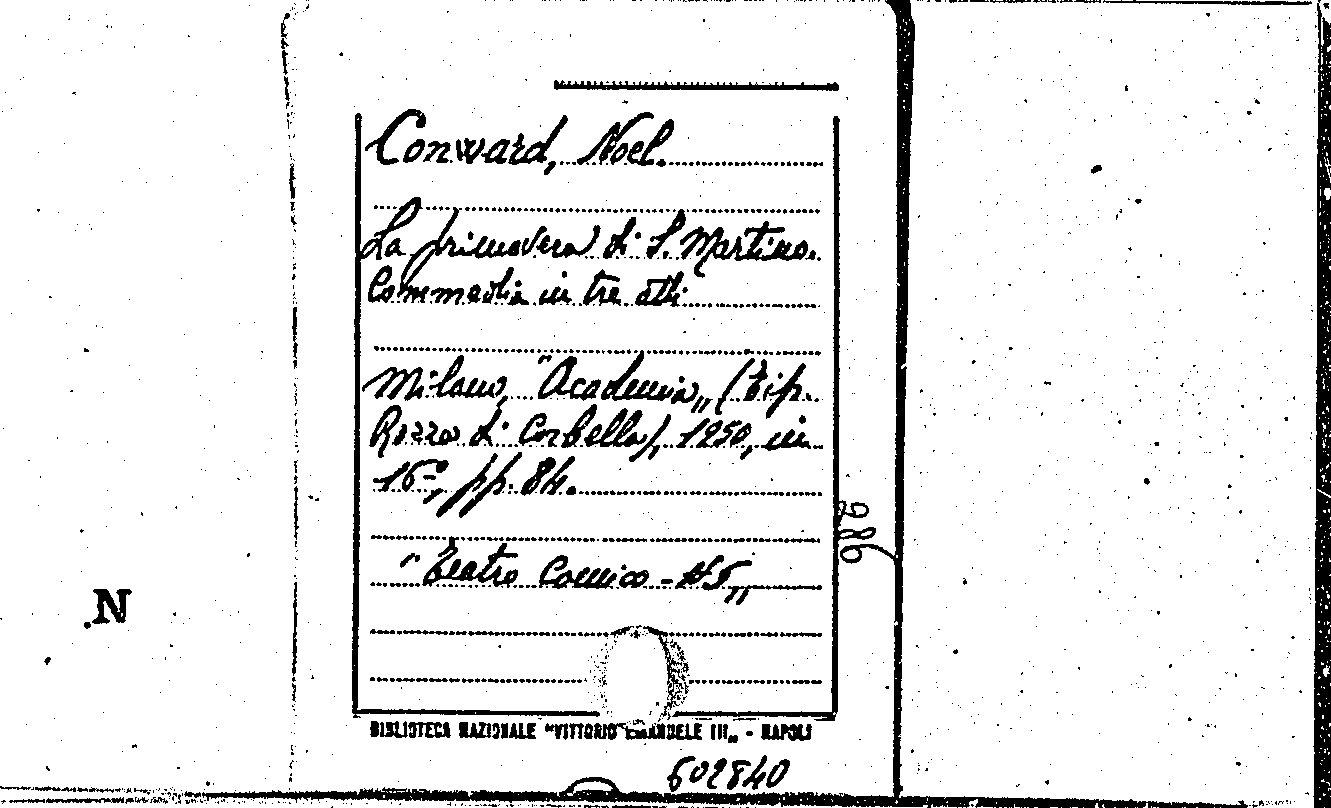 Conward, Noel.
La primavera di S. Martino.
Commedia in tre atti
Milano, "Academia„ (Tip.
Rozza di Corbella), 1950, in
16°, pp. 84.
"Teatro Comico - N 5„
986
N
BIBLIOTECA NAZIONALE "VITTORIO EMANUELE III„ - NAPOLI
602840